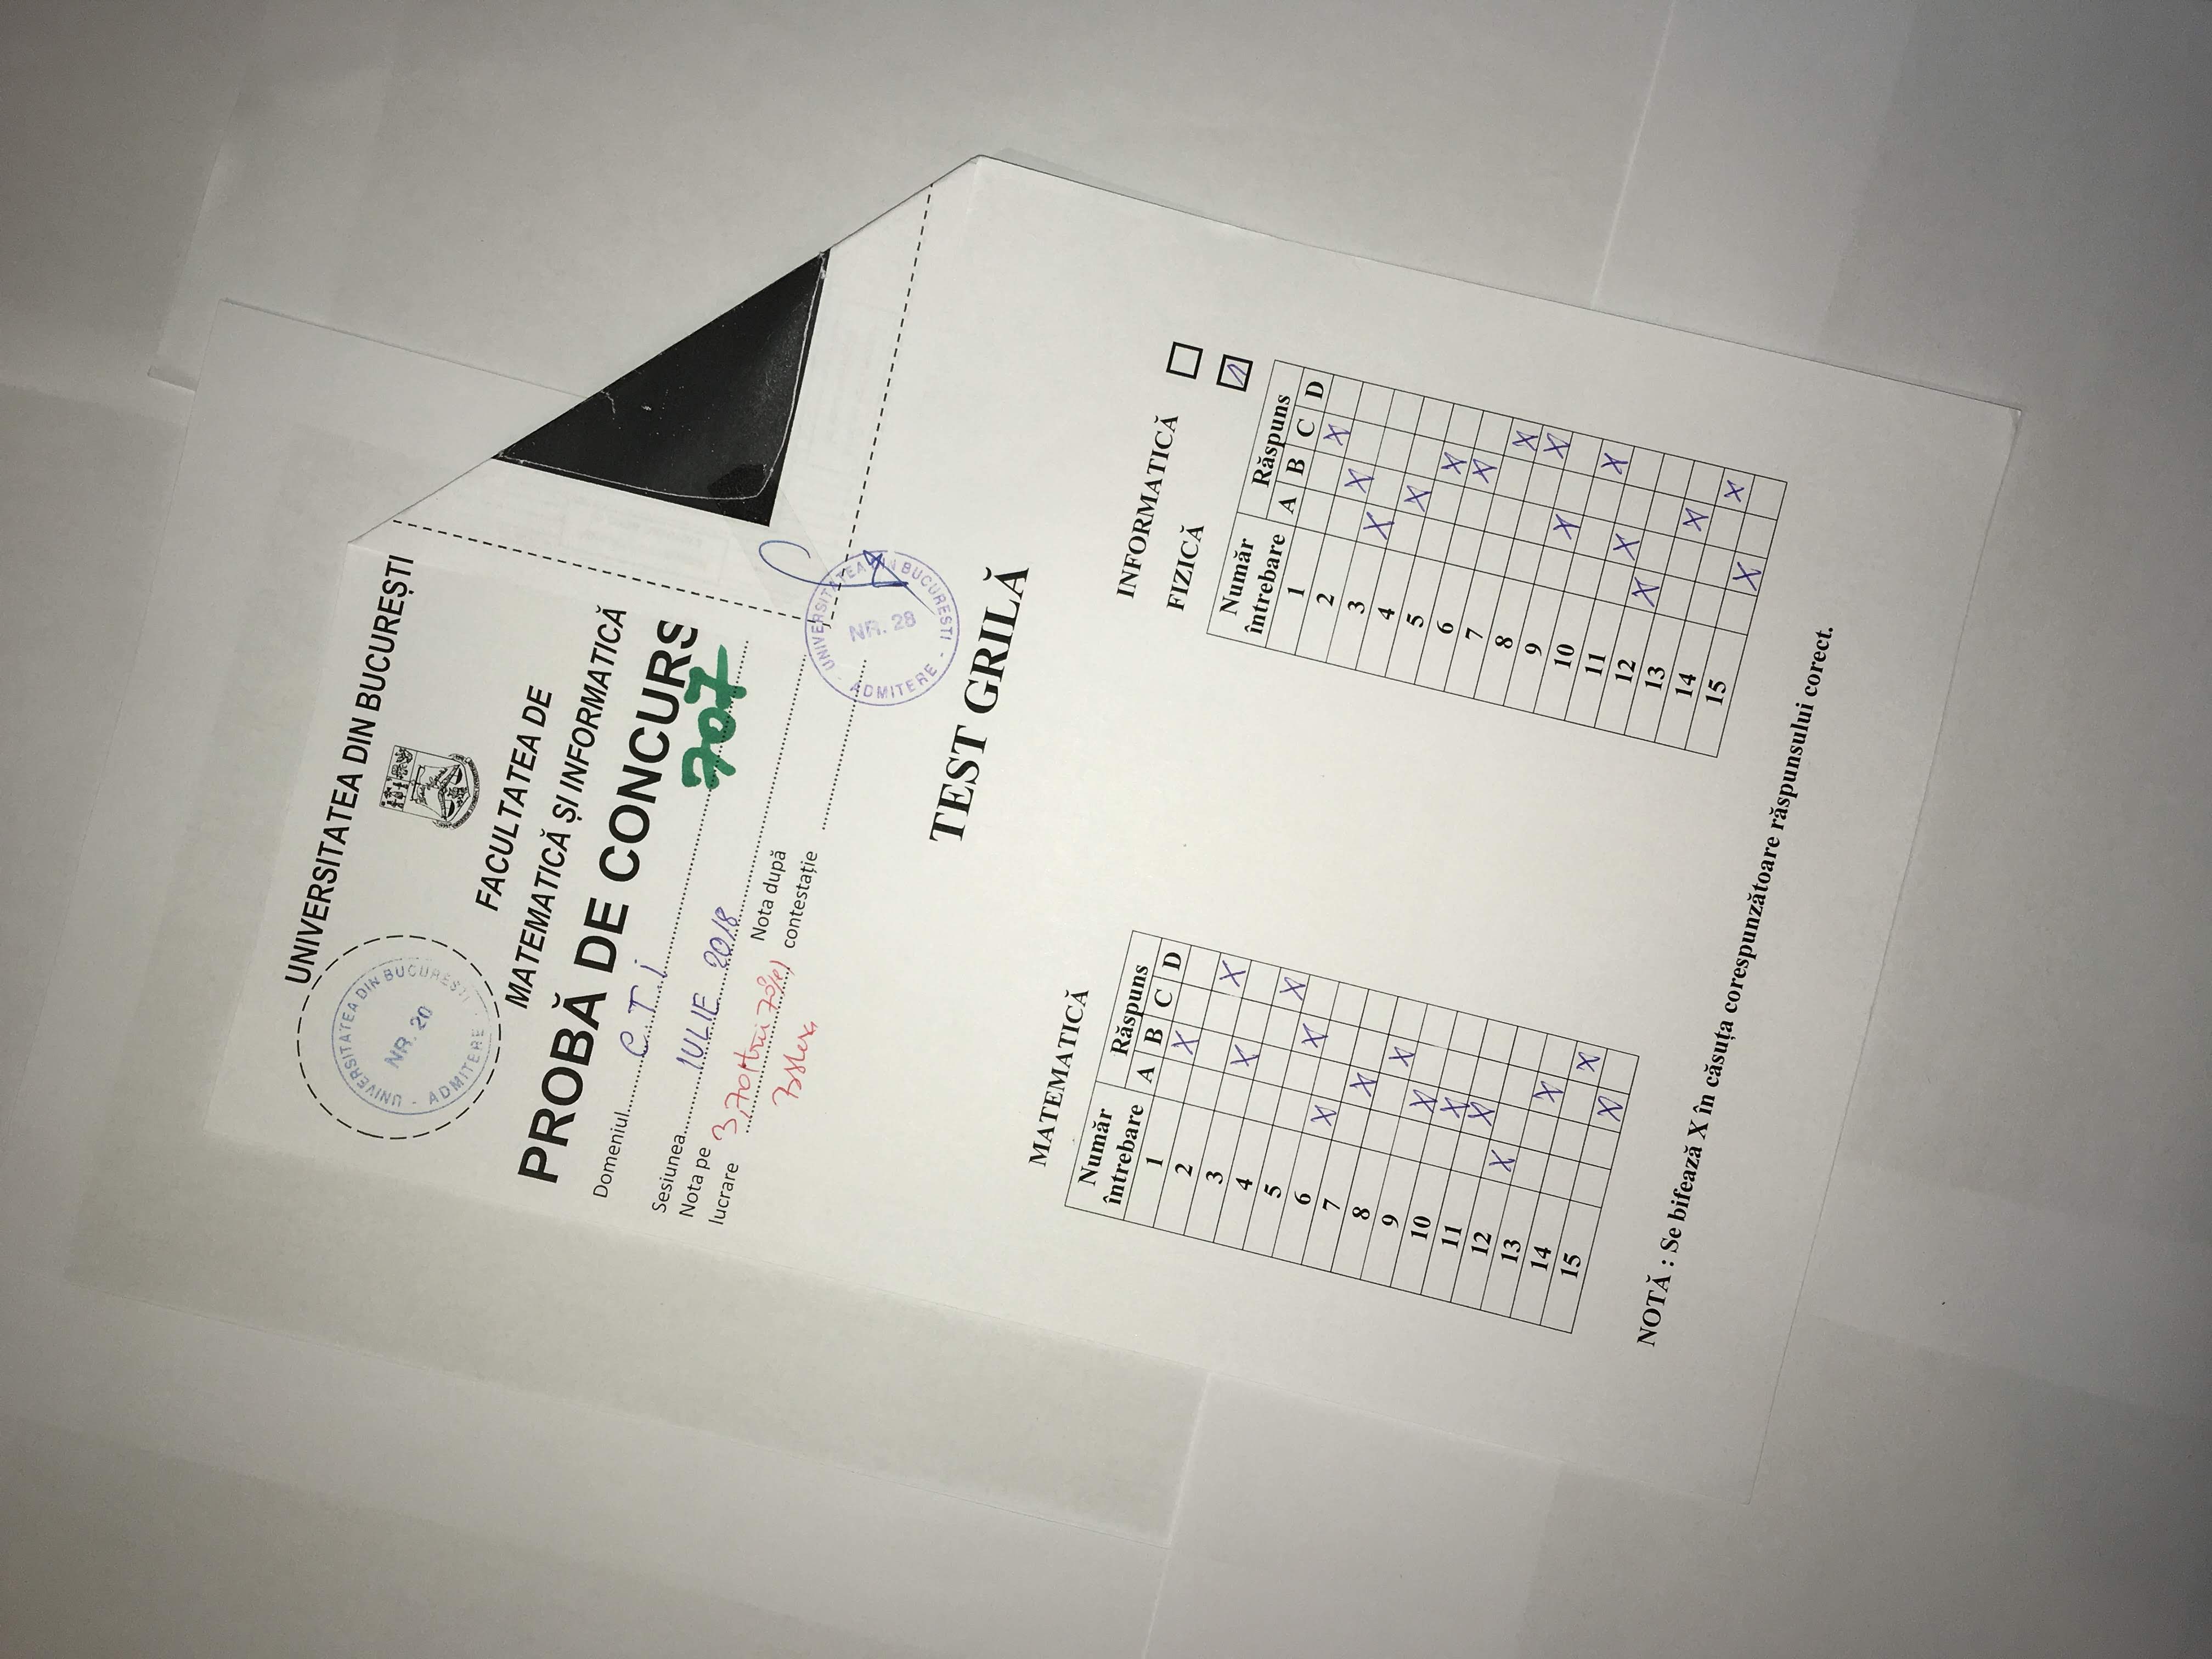 UNIVERSITATEA DIN BUCUREȘTI
UNIVERSITATEA DIN BUCURESTI - ADMITERE -
NR. 20
FACULTATEA DE
MATEMATICĂ ȘI INFORMATICĂ
PROBĂ DE CONCURS
Domeniul C.T.i
707
Sesiunea IULIE 2018
Nota pe
lucrare 3,70
Nota după
contestație
UNIVERSITATEA DIN BUCURESTI - ADMITERE -
NR. 28
TEST GRILĂ
MATEMATICĂ
Număr întrebare Răspuns
A B C D
1 X
2 X
3 X
4 X
5 X
6 X
7 X
8 X
9 X
10 X
11 X
12 X
13 X
14 X
15 X
INFORMATICĂ
FIZICĂ
Număr întrebare Răspuns
A B C D
1 X
2 X
3 X
4 X
5 X
6 X
7 X
8 X
9 X
10 X
11 X
12 X
13 X
14 X
15 X
NOTĂ : Se bifează X în căsuța corespunzătoare răspunsului corect.